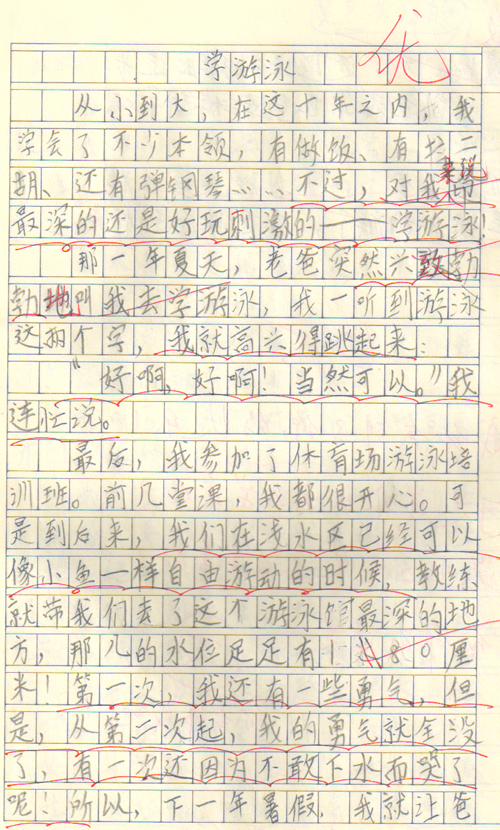 优
学游泳
从小到大，在这十年之内，我
学会了不少本领，有做饭、有拉二
胡、还有弹钢琴……不过，对我来说印
最深的还是好玩刺激的——学游泳！
那一年夏天，老爸突然兴致勃
勃地叫我去学游泳，我一听到游泳
这两个字，我就高兴得跳起来：
“好啊，好啊！当然可以。”我
连忙说。
最后，我参加了体育场游泳培
训班。前几堂课，我都很开心。可
是到后来，我们在浅水区已经可以
像小鱼一样自由游动的时候，教练
就带我们去了这个游泳馆最深的地
方，那儿的水位足足有180厘
米！第一次，我还有一些勇气，但
是，从第二次起，我的勇气就全没
了，有一次还因为不敢下水而哭了
呢！所以，下一年暑假，我就让爸